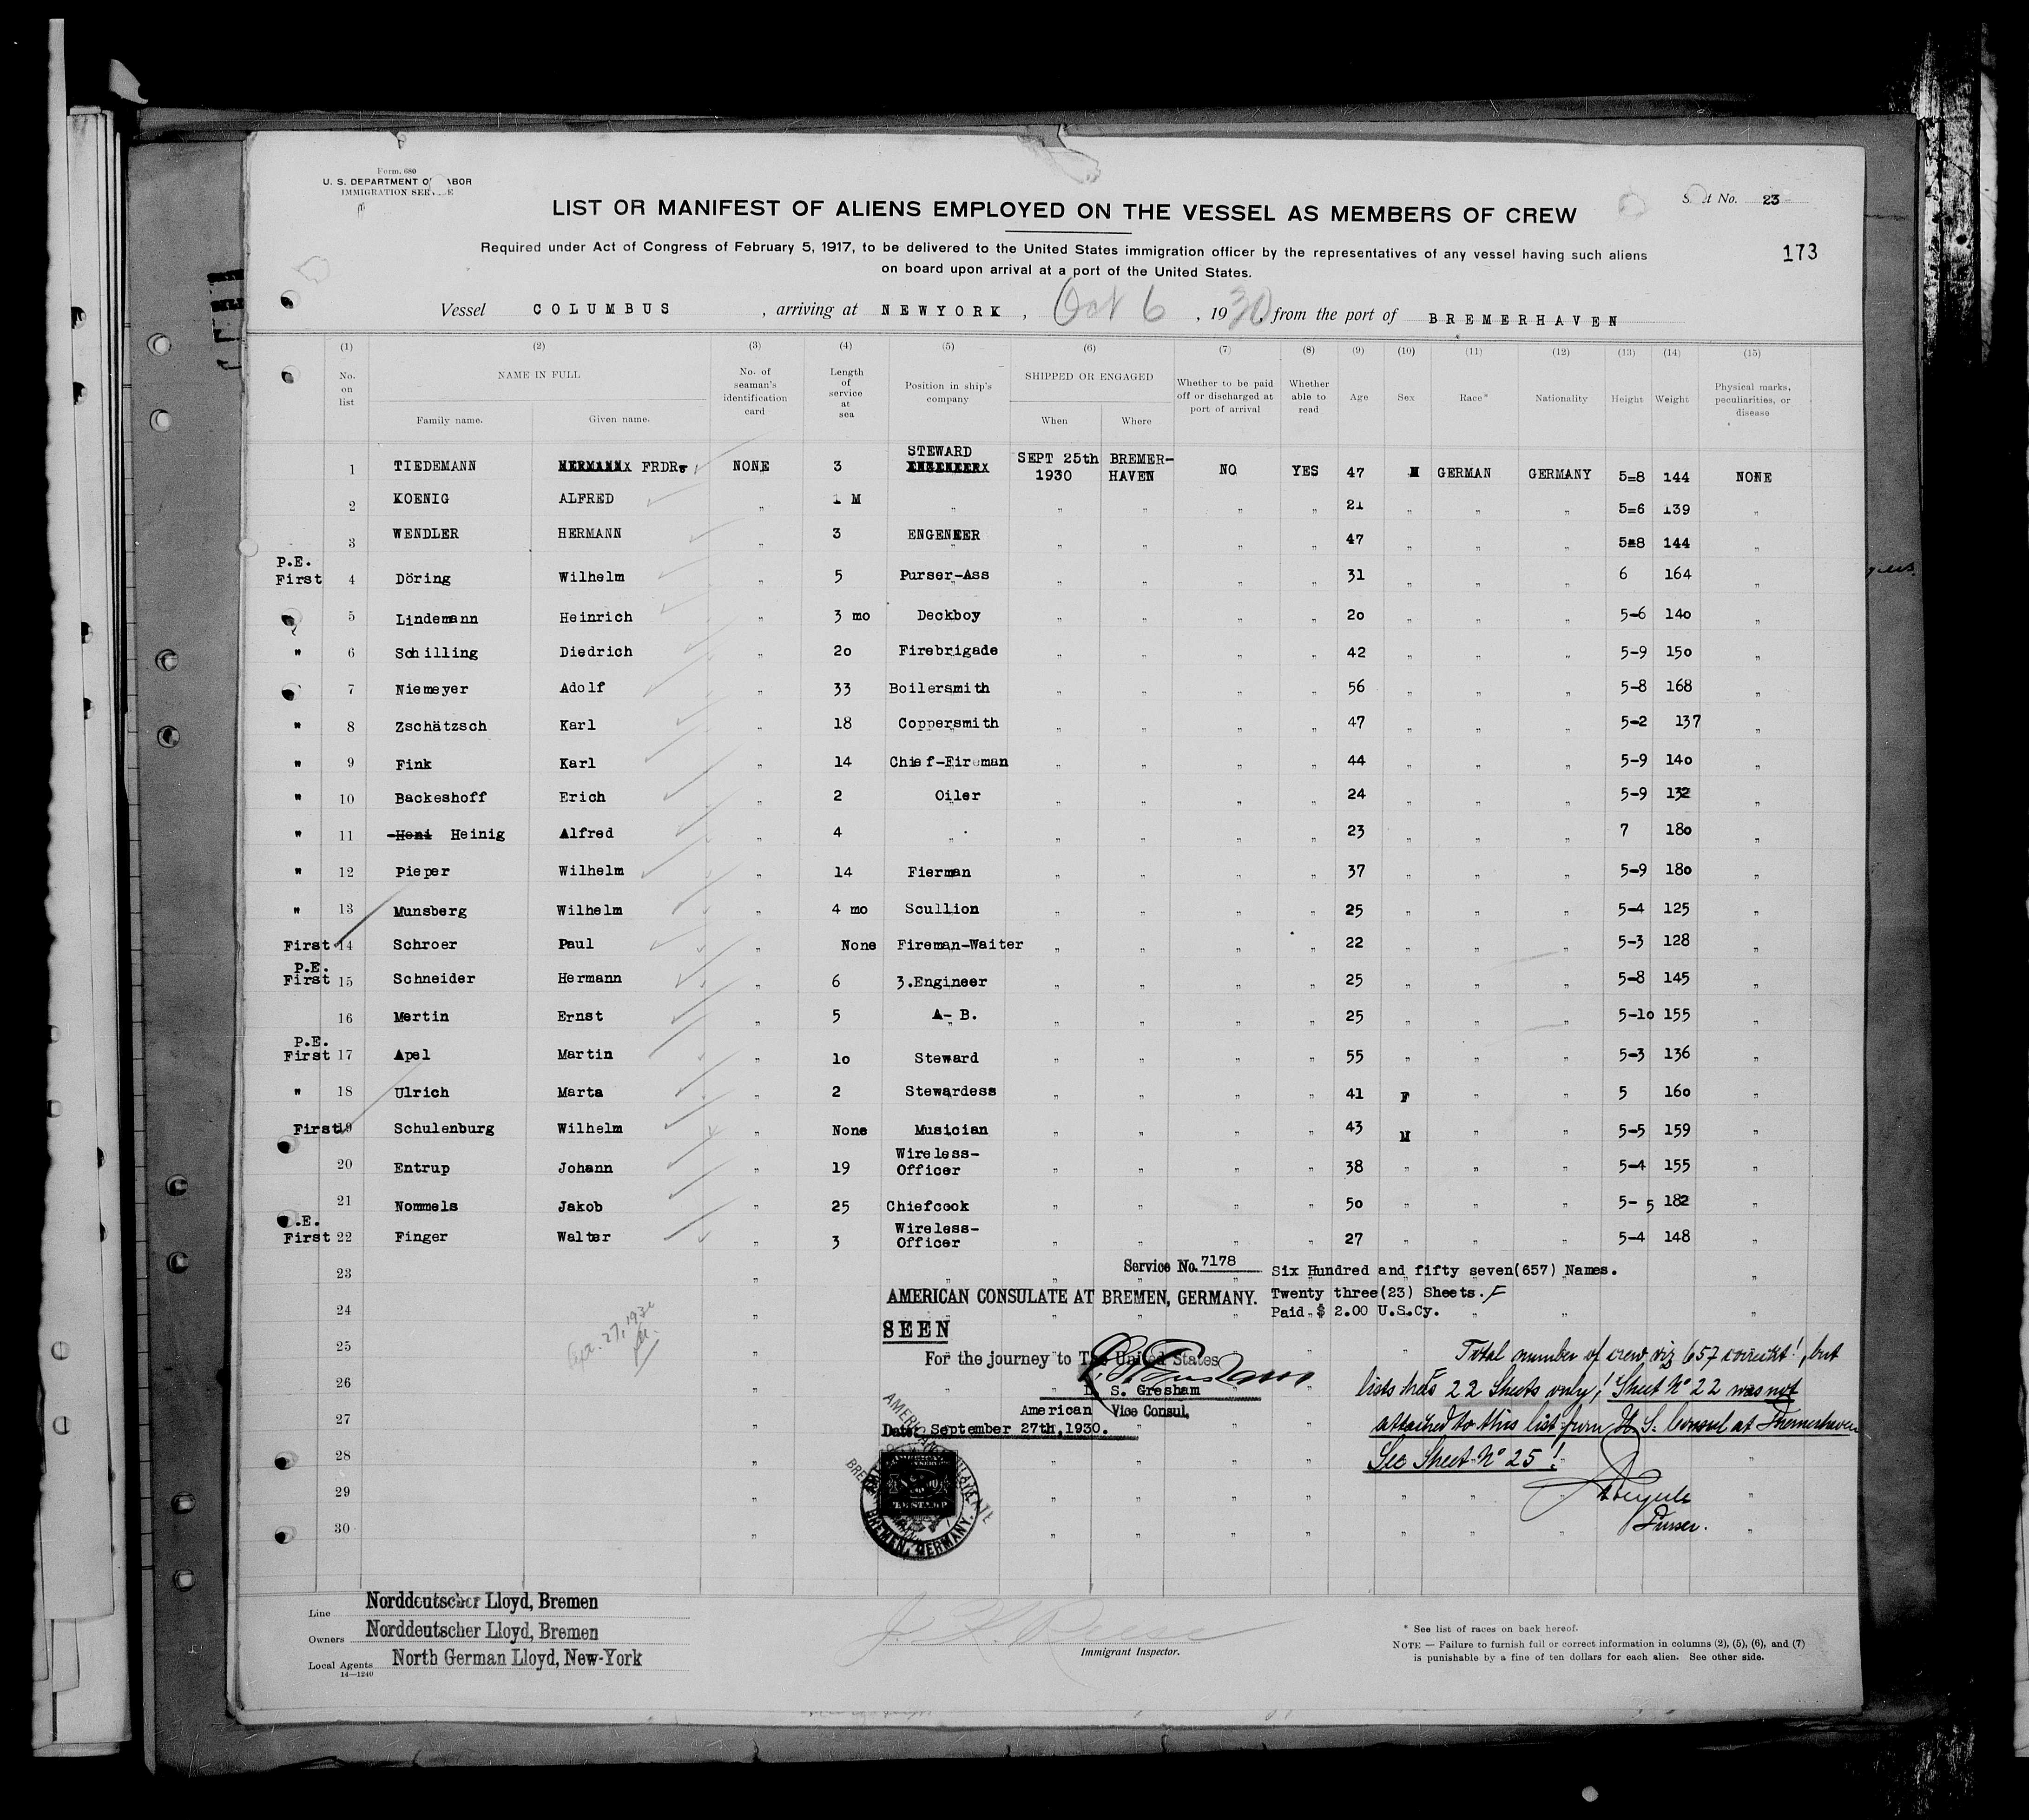 Form. 680
U. S. DEPARTMENT OF LABOR
IMMIGRATION SERVICE
Sheet No. 23
LIST OR MANIFEST OF ALIENS EMPLOYED ON THE VESSEL AS MEMBERS OF CREW
173
Required under Act of Congress of February 5, 1917, to be delivered to the United States immigration officer by the representatives of any vessel having such aliens
on board upon arrival at a port of the United States.
Vessel COLUMBUS , arriving at NEWYORK , Oct 6 , 1930, from the port of BREMERHAVEN
(1) (2) (3) (4) (5) (6) (7) (8) (9) (10) (11) (12) (13) (14) (15)
No. on list NAME IN FULL Family name. Given name. No. of seaman's identification card Length of service at sea Position in ship's company SHIPPED OR ENGAGED When Where Whether to be paid off or discharged at port of arrival Whether able to read Age Sex Race* Nationality Height Weight Physical marks, peculiarities, or disease
1 TIEDEMANN FRDR. NONE 3 STEWARD SEPT 25th 1930 BREMER-HAVEN NO YES 47 M GERMAN GERMANY 5=8 144 NONE
2 KOENIG ALFRED „ 1 M „ „ „ „ „ 21 „ „ „ 5=6 139 „
3 WENDLER HERMANN „ 3 ENGENEER „ „ „ „ 47 „ „ „ 5=8 144 „
P.E. First 4 Döring Wilhelm „ 5 Purser-Ass „ „ „ „ 31 „ „ „ 6 164 „
5 Lindemann Heinrich „ 3 mo Deckboy „ „ „ „ 2o „ „ „ 5-6 14o „
" 6 Schilling Diedrich „ 2o Firebrigade „ „ „ „ 42 „ „ „ 5-9 15o „
7 Niemeyer Adolf „ 33 Boilersmith „ „ „ „ 56 „ „ „ 5-8 168 „
" 8 Zschätzsch Karl „ 18 Coppersmith „ „ „ „ 47 „ „ „ 5-2 137 „
" 9 Fink Karl „ 14 Chief-Fireman „ „ „ „ 44 „ „ „ 5-9 14o „
" 10 Backeshoff Erich „ 2 Oiler „ „ „ „ 24 „ „ „ 5-9 132 „
" 11 Heni Heinig Alfred „ 4 „ „ „ „ „ 23 „ „ „ 7 18o „
" 12 Pieper Wilhelm „ 14 Fierman „ „ „ „ 37 „ „ „ 5-9 18o „
" 13 Munsberg Wilhelm „ 4 mo Scullion „ „ „ „ 25 „ „ „ 5-4 125 „
First 14 Schroer Paul „ None Fireman-Waiter „ „ „ „ 22 „ „ „ 5-3 128 „
P.E. First 15 Schneider Hermann „ 6 3.Engineer „ „ „ „ 25 „ „ „ 5-8 145 „
16 Mertin Ernst „ 5 A- B. „ „ „ „ 25 „ „ „ 5-1o 155 „
P.E. First 17 Apel Martin „ 1o Steward „ „ „ „ 55 „ „ „ 5-3 136 „
" 18 Ulrich Marta „ 2 Stewardess „ „ „ „ 41 F „ „ 5 16o „
First 19 Schulenburg Wilhelm „ None Musician „ „ „ „ 43 M „ „ 5-5 159 „
20 Entrup Johann „ 19 Wireless-Officer „ „ „ „ 38 „ „ „ 5-4 155 „
21 Nommels Jakob „ 25 Chiefcook „ „ „ „ 5o „ „ „ 5- 5 182 „
P.E. First 22 Finger Walter „ 3 Wireless-Officer „ „ „ „ 27 „ „ „ 5-4 148 „
23
24
25
26
27
28
29
30
Service No. 7178
Six Hundred and fifty seven(657) Names.
AMERICAN CONSULATE AT BREMEN, GERMANY.
Twenty three(23) Sheets.
Paid $ 2.00 U.S.Cy.
SEEN
For the journey to The United States
L. S. Gresham
American Vice Consul.
Date: September 27th,1930.
Sept. 27, 1930
BREMEN, GERMANY.
Total number of crew viz 657 correct!, but
lists has 22 Sheets only! Sheet No 22 was not
attached to this list from U. S. Consul at Bremerhaven
See Sheet No 25!
Purser.
Line Norddeutscher Lloyd, Bremen
Owners Norddeutscher Lloyd, Bremen
Local Agents North German Lloyd, New-York
14—1240
J. K. Reese
Immigrant Inspector.
* See list of races on back hereof.
NOTE — Failure to furnish full or correct information in columns (2), (5), (6), and (7)
is punishable by a fine of ten dollars for each alien. See other side.